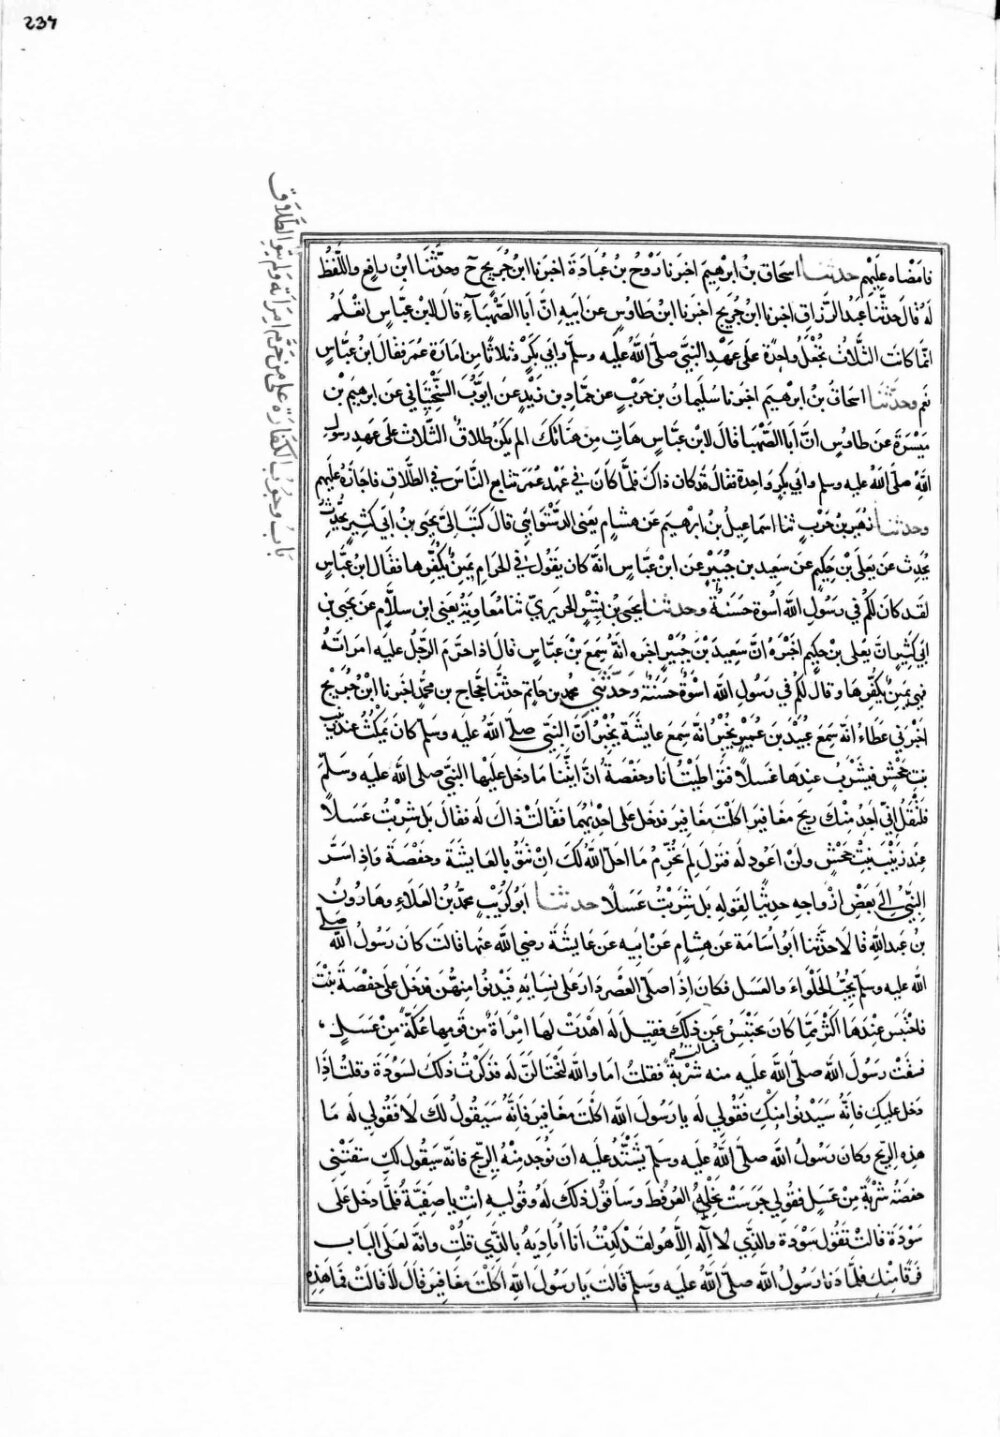 237
باب وجوب الكفارة على من حرم امراته ولم ينو الطلاق
فامضاه عليهم حدثنا اسحاق بن ابرهيم اخبرنا روح بن عبادة اخبرنا ابن جريج ح وحدثنا ابن رافع واللفظ
له قال حدثنا عبد الرزاق اخبرنا ابن جريج اخبرنا ابن طاوس عن ابيه ان ابا الصهباء قال لابن عباس اتعلم
انما كانت الثلاث تجعل واحدة على عهد النبي صلى الله عليه وسلم وابي بكر وثلاثا من امارة عمر فقال ابن عباس
نعم وحدثنا اسحاق بن ابرهيم اخبرنا سليمان بن حرب عن حماد بن زيد عن ايوب السختياني عن ابرهيم بن
ميسرة عن طاوس ان ابا الصهبا قال لابن عباس هات من هناتك الم يكن طلاق الثلاث على عهد رسول
الله صلى الله عليه وسلم وابي بكر واحدة فقال قد كان ذاك فلما كان في عهد عمر تتابع الناس في الطلاق فاجازه عليهم
وحدثنا زهير بن حرب ثنا اسماعيل بن ابرهيم عن هشام يعني الدستوائي قال كتب الي يحيى بن ابي كثير يحدث
يحدث عن يعلى بن حكيم عن سعيد بن جبير عن ابن عباس انه كان يقول في الحرام يمين يكفرها فقال ابن عباس
لقد كان لكم في رسول الله اسوة حسنة وحدثنا يحيى بن بشر الحريري ثنا معاوية يعني ابن سلام عن يحيى بن
ابي كثير ان يعلى بن حكيم اخبره ان سعيد بن جبير اخبره انه سمع بن عباس قال اذا حرم الرجل عليه امراته
فهي يمين يكفرها وقال لكم في رسول الله اسوة حسنة وحدثني محمد بن حاتم حدثنا حجاج بن محمد اخبرنا ابن جريج
اخبرني عطاء انه سمع عبيد بن عمير يخبر انه سمع عايشة تخبر ان النبي صلى الله عليه وسلم كان يمكث عند زينب
بنت جحش فيشرب عندها عسلا فتواطيت انا وحفصة ان ايتنا ما دخل عليها النبي صلى الله عليه وسلم
فلتقل اني اجد منك ريح مغافير اكلت مغافير فدخل على احديهما فقالت ذاك له فقال بل شربت عسلا
عند زينب بنت جحش ولن اعود له فنزل لم تحرم ما احل الله لك ان تتوبا لعايشة وحفصة واذ اسر
النبي الى بعض ازواجه حديثا لقوله بل شربت عسلا حدثنا ابو كريب محمد بن العلاء وهارون
بن عبد الله قالا حدثنا ابو اسامة عن هشام عن ابيه عن عايشة رضي الله عنها قالت كان رسول الله صلى
الله عليه وسلم يحب الحلواء والعسل فكان اذا صلى العصر دار على نسايه فيدنوا منهن فدخل على حفصة بنت
فاحتبس عندها اكثر مما كان يحتبس عن ذلك فقيل له اهدت لها امراة من قومها عكة من عسل
فسقت رسول الله صلى الله عليه منه شربة فقلت اما والله لنحتالن له فذكرت ذلك لسودة وقلت اذا
دخل عليك فانه سيدنوا منك فقولي له يا رسول الله اكلت مغافير فانه سيقول لك لا فقولي له ما
هذه الريح وكان رسول الله صلى الله عليه وسلم يشتد عليه ان توجد منه الريح فانه سيقول لك سقتني
حفصة شربة من عسل فقولي جرست نحله العرفط وساقول ذلك له وقوليه انت يا صفية فلما دخل على
سودة قالت تقول سودة والذي لا اله الا هو لقد كدت انا اباديه بالذي قلت وانه لعلى الباب
فرقا منك فلما دنا رسول الله صلى الله عليه وسلم قالت يا رسول الله اكلت مغافير قال لا قالت فما هذه